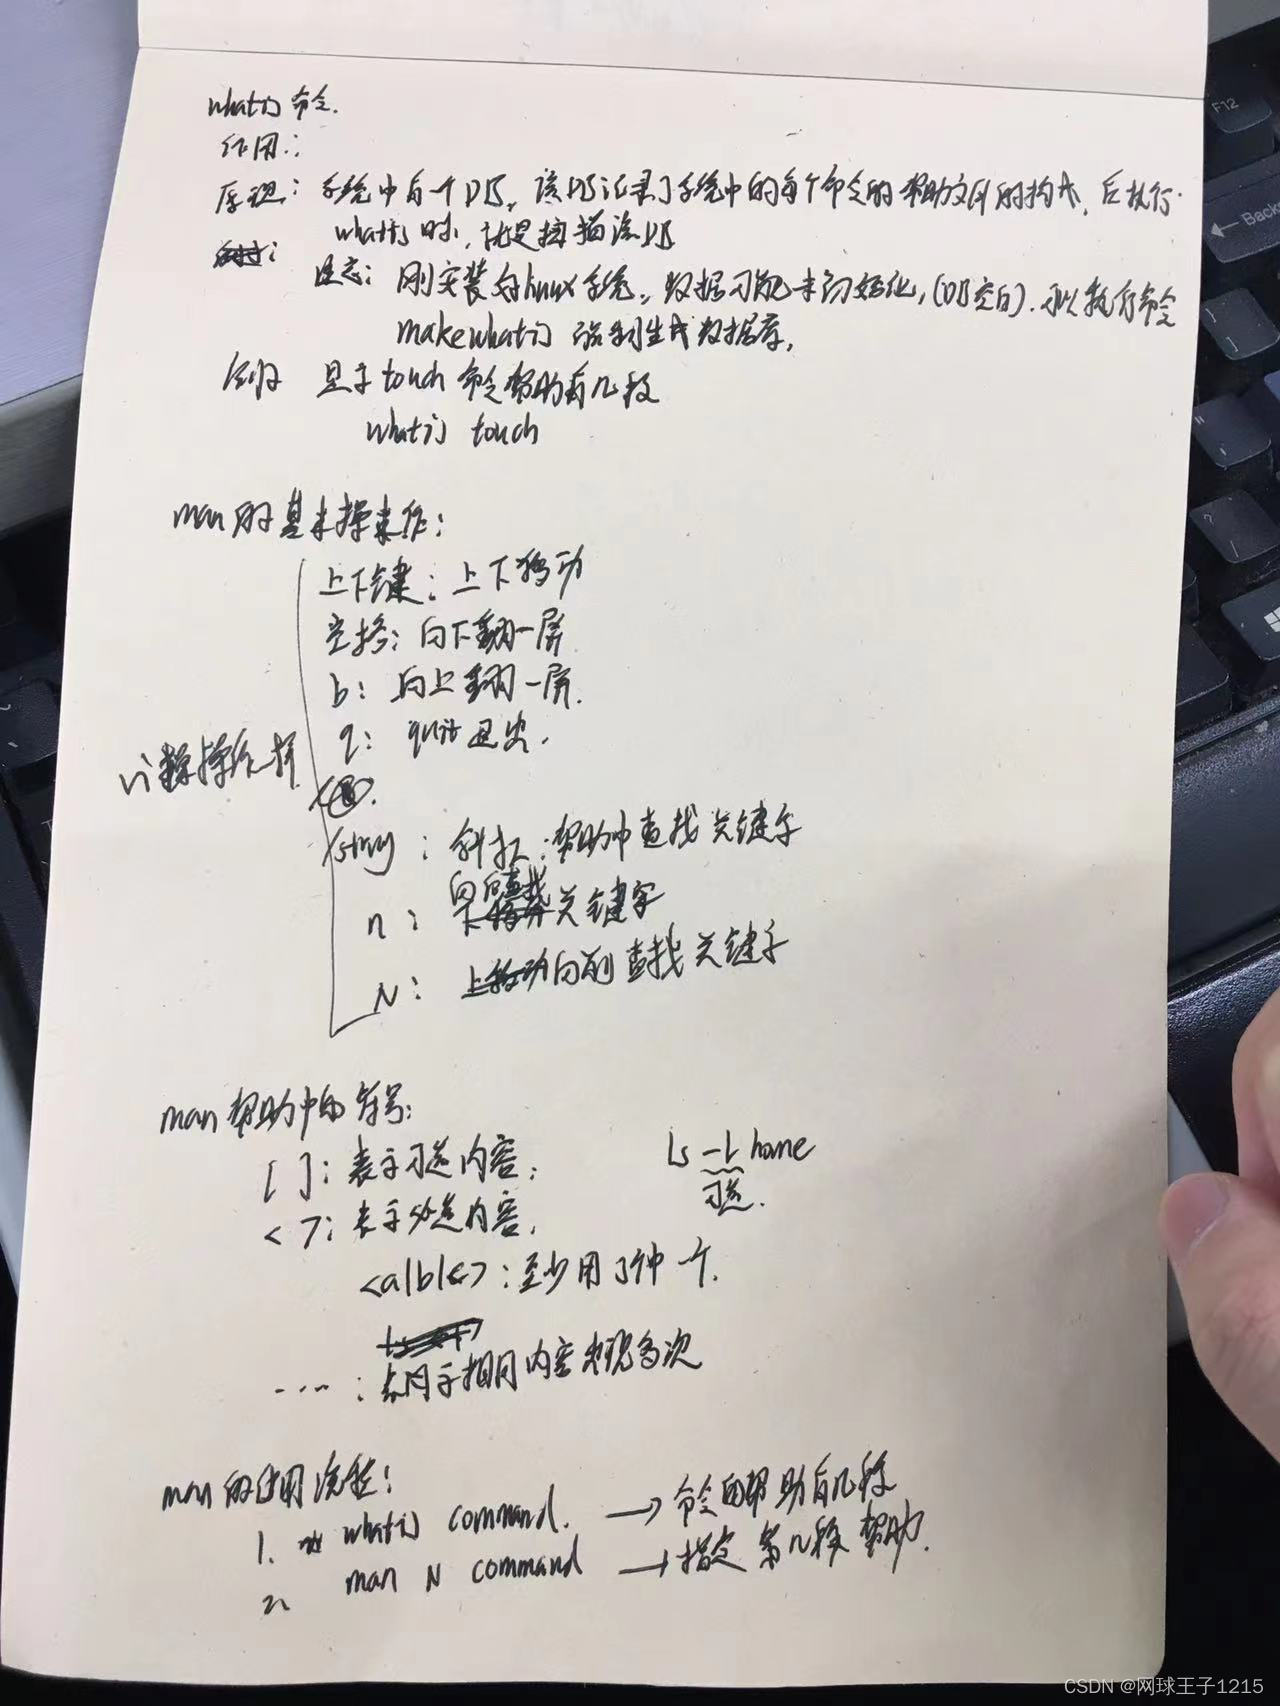 whatis 命令.
作用:
原理: 系统中有一个DB, 该DB记录了系统中的每个命令的帮助文件的构成, 后执行
whatis时, 就是扫描该DB
注意: 刚安装的linux系统, 数据可能未初始化, (DB空白). 可以执行命令
makewhatis 强制生成数据库,
例如 显示touch命令帮助有几段
whatis touch
man的基本操作:
上下键: 上下移动
空格: 向下翻一屏
b: 向上翻一屏.
q: quit退出.
vi 操作一样
/string : 斜杠: 帮助中查找关键字
n: 向后查找关键字
N: 向前查找关键字
man帮助中的符号:
[ ]: 表示可选内容;
ls -l home
可选.
< >: 表示必选内容.
<a|b|c>: 至少用了其中一个.
....: 表示相同内容出现多次
man的使用流程:
1. whatis command. → 命令的帮助有几种
2. man N command → 指定第几种帮助.
F12
Back
CSDN @网球王子1215